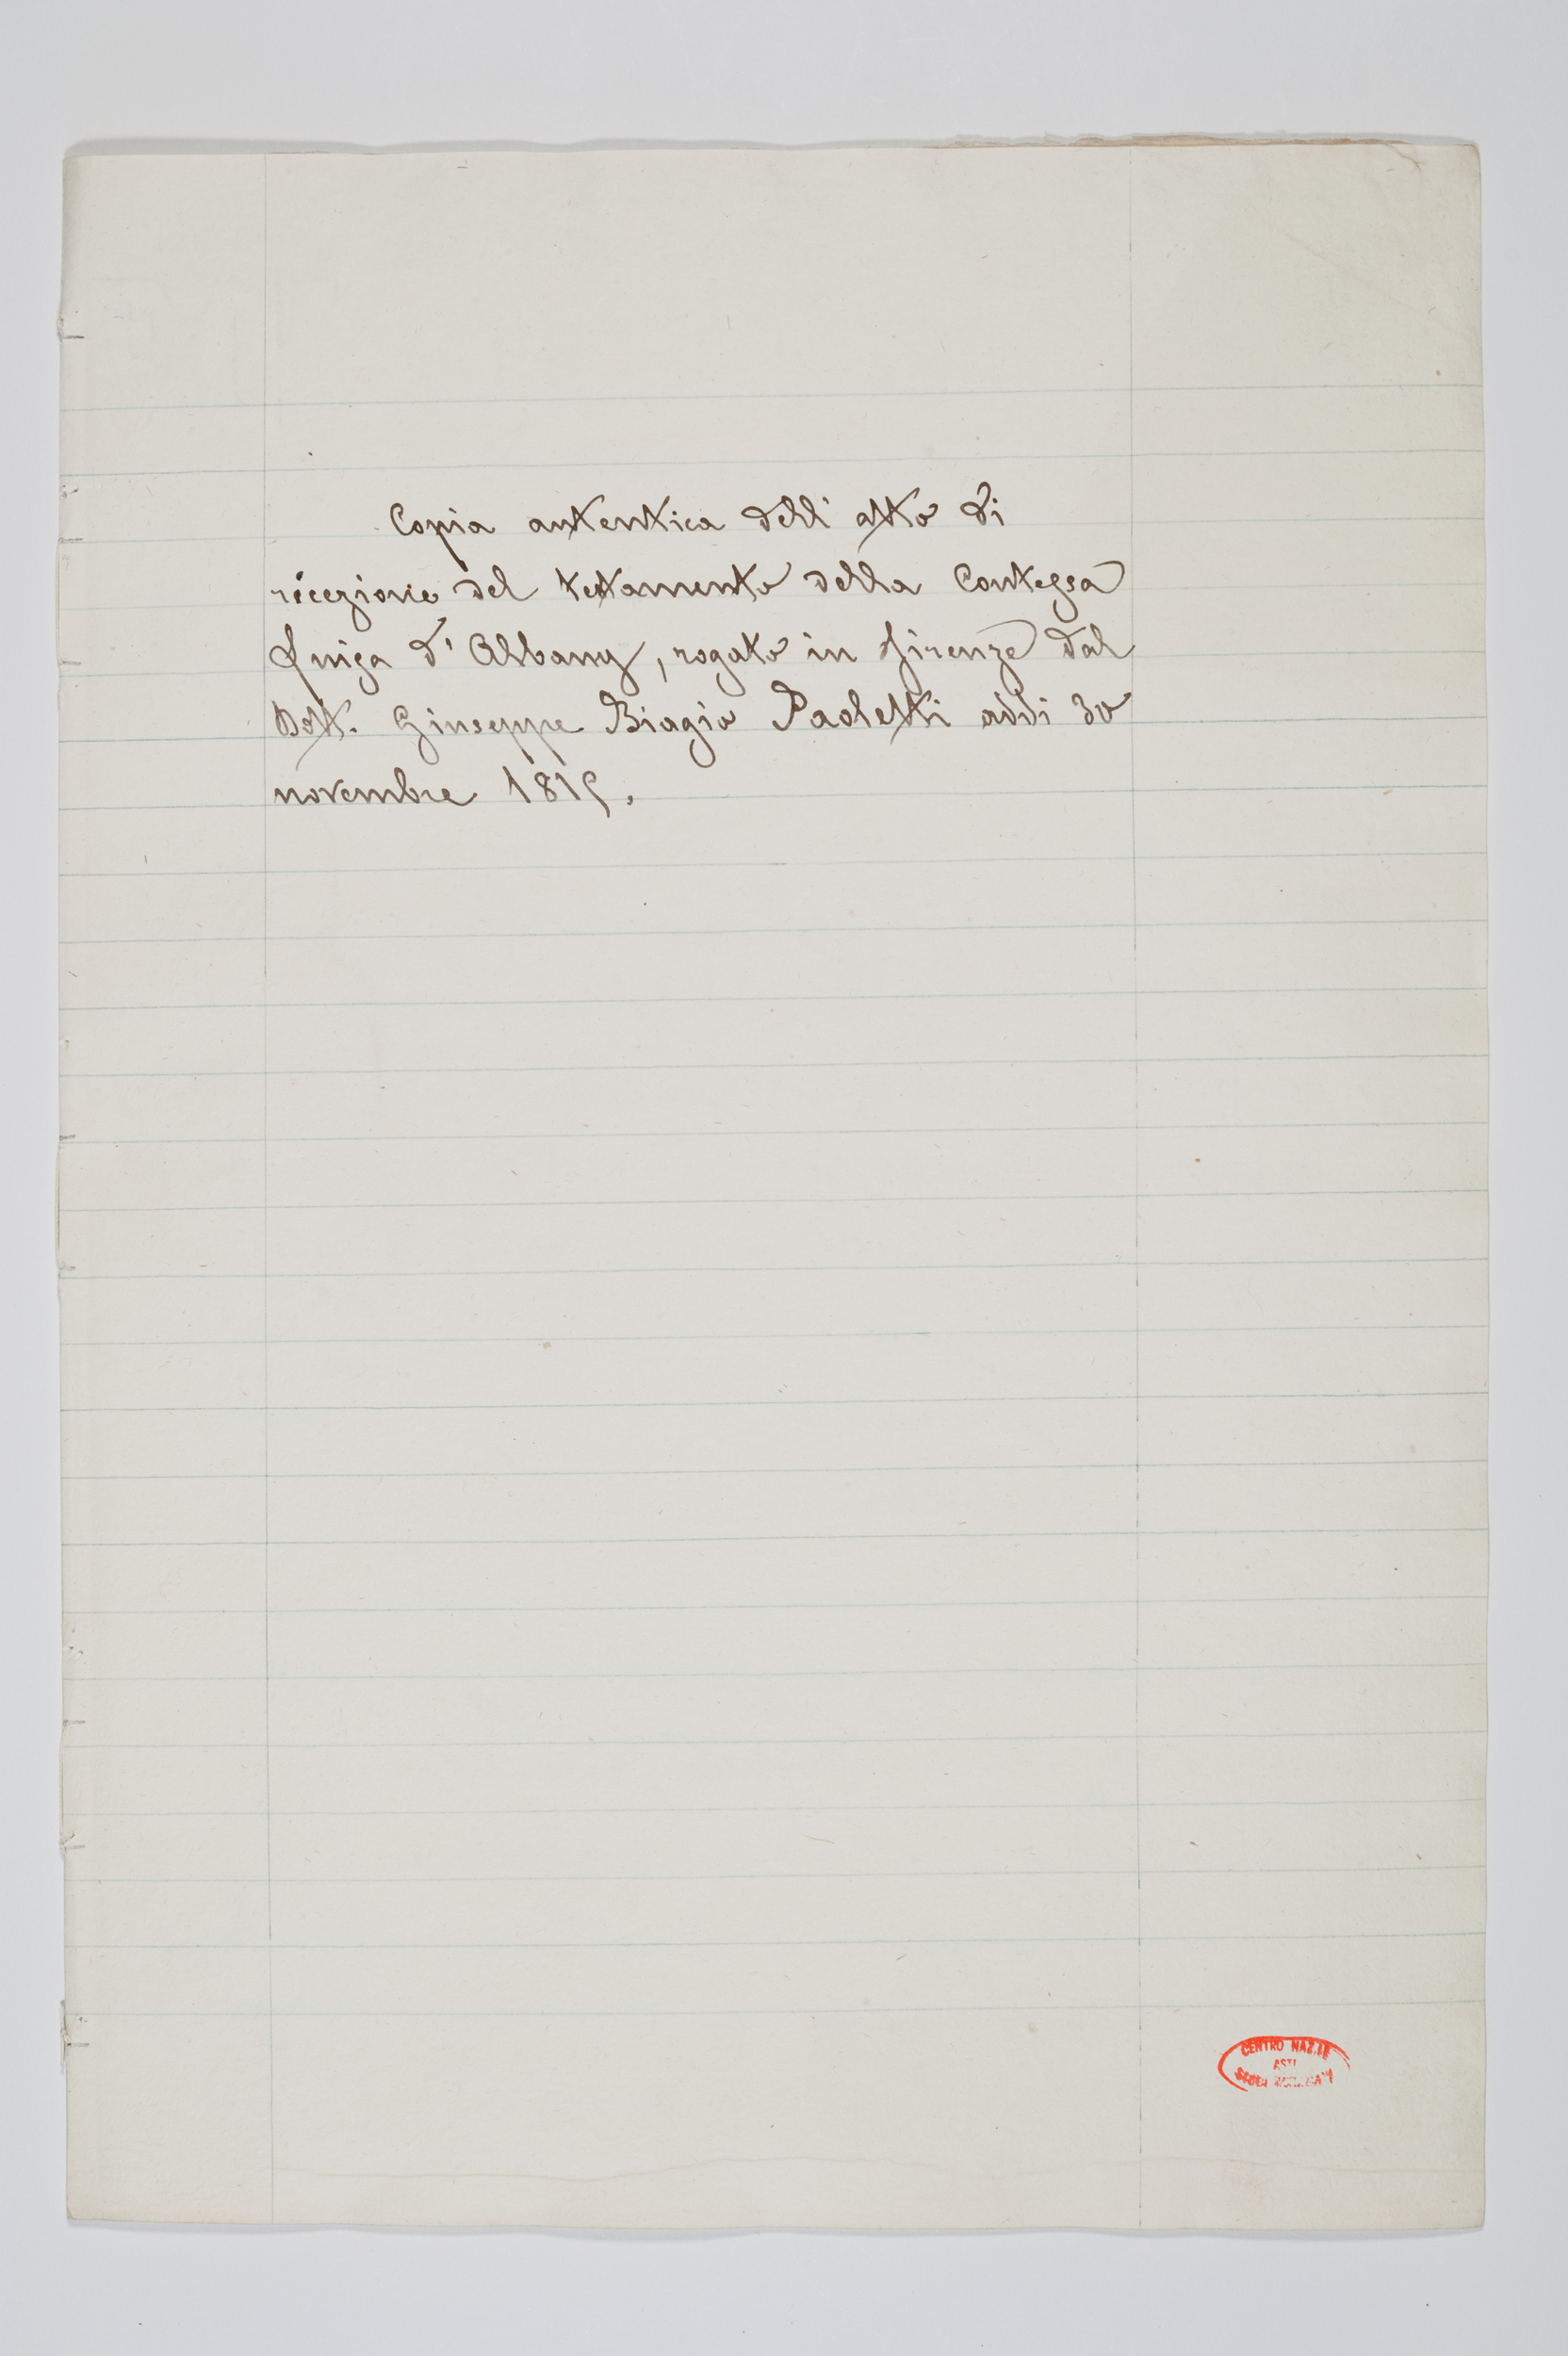 Copia autentica dell' atto di
recezione del testamento della Contessa
Luisa d' Albany, rogato in Firenze dal
Dott. Giuseppe Biagio Paoletti addì 30
novembre 1819.
CENTRO NAZ.LE
ASTI
STUDI